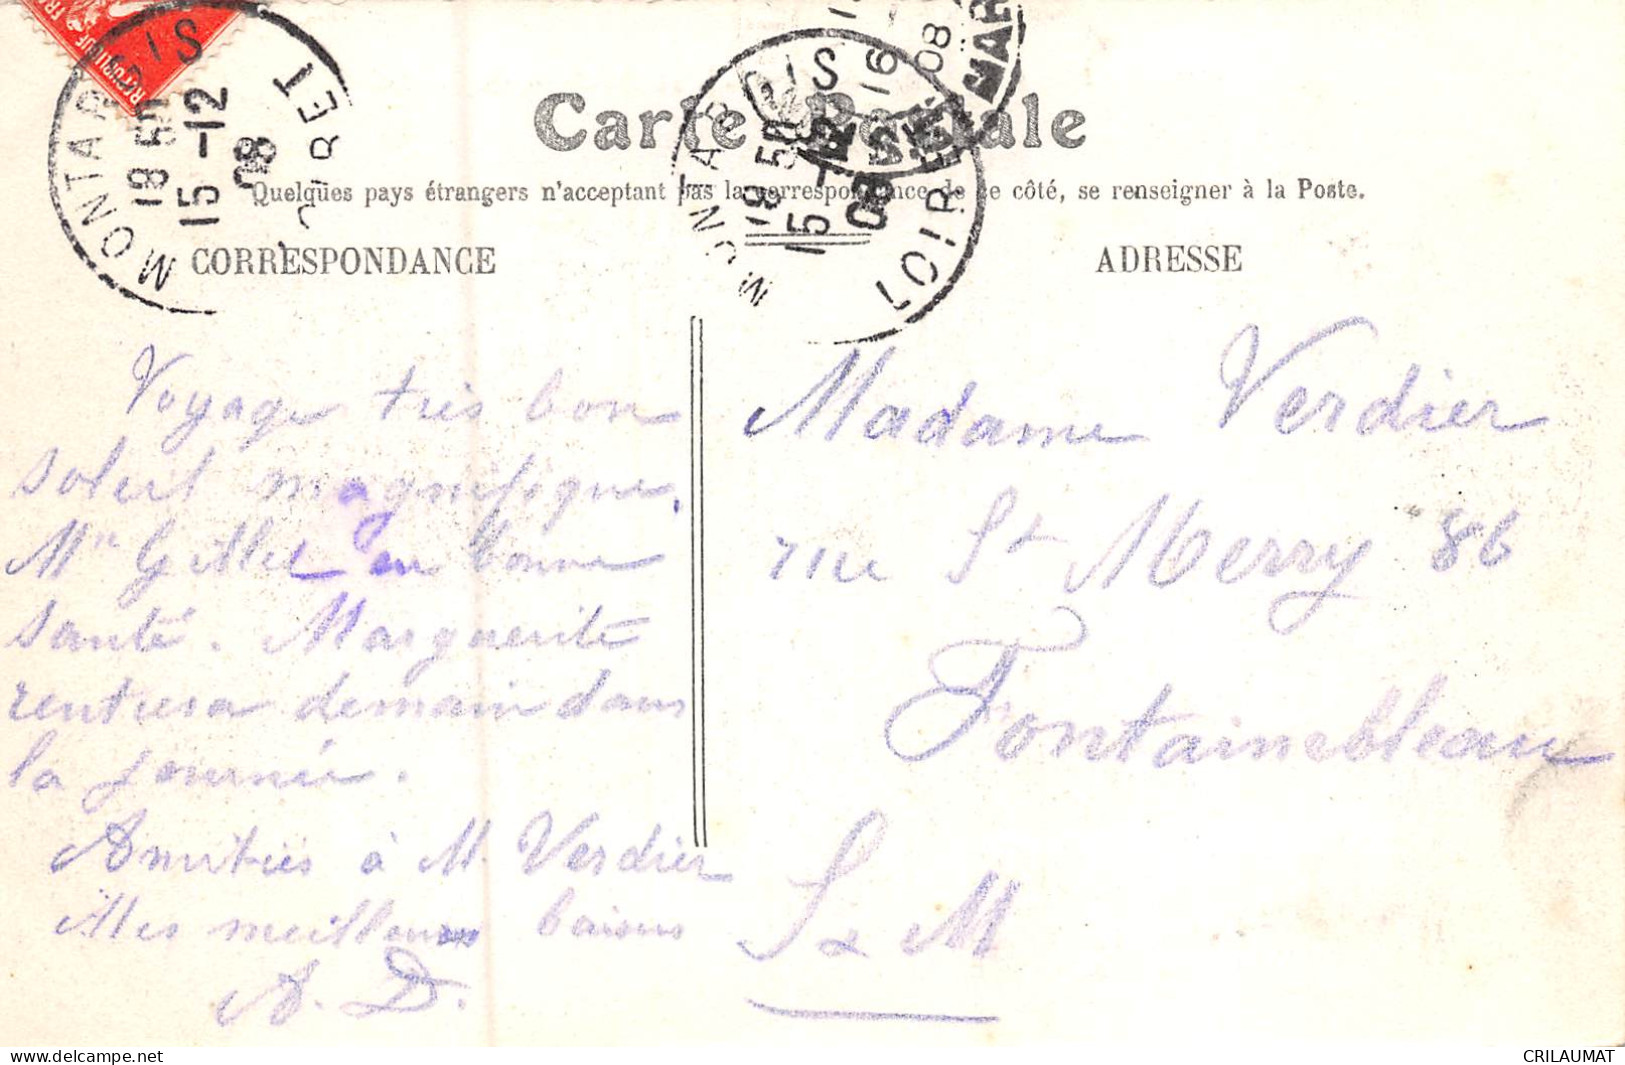 RÉPUBLIQUE FR
MONTARGIS
18 50
15-12
08
LOIRET
MONTARGIS
18 50
15-12
08
LOIRET
16
08
Carte Postale
Quelques pays étrangers n'acceptant pas la correspondance de ce côté, se renseigner à la Poste.
CORRESPONDANCE
ADRESSE
Voyage très bon
soleil magnifique,
Mme Gillet en bonne
santé. Marguerite
rentrera demain dans
la journée.
Amitiés à M. Verdier
Mes meilleurs baisers
A. D.
Madame Verdier
rue St Merry 86
Fontainebleau
S & M
CRILAUMAT